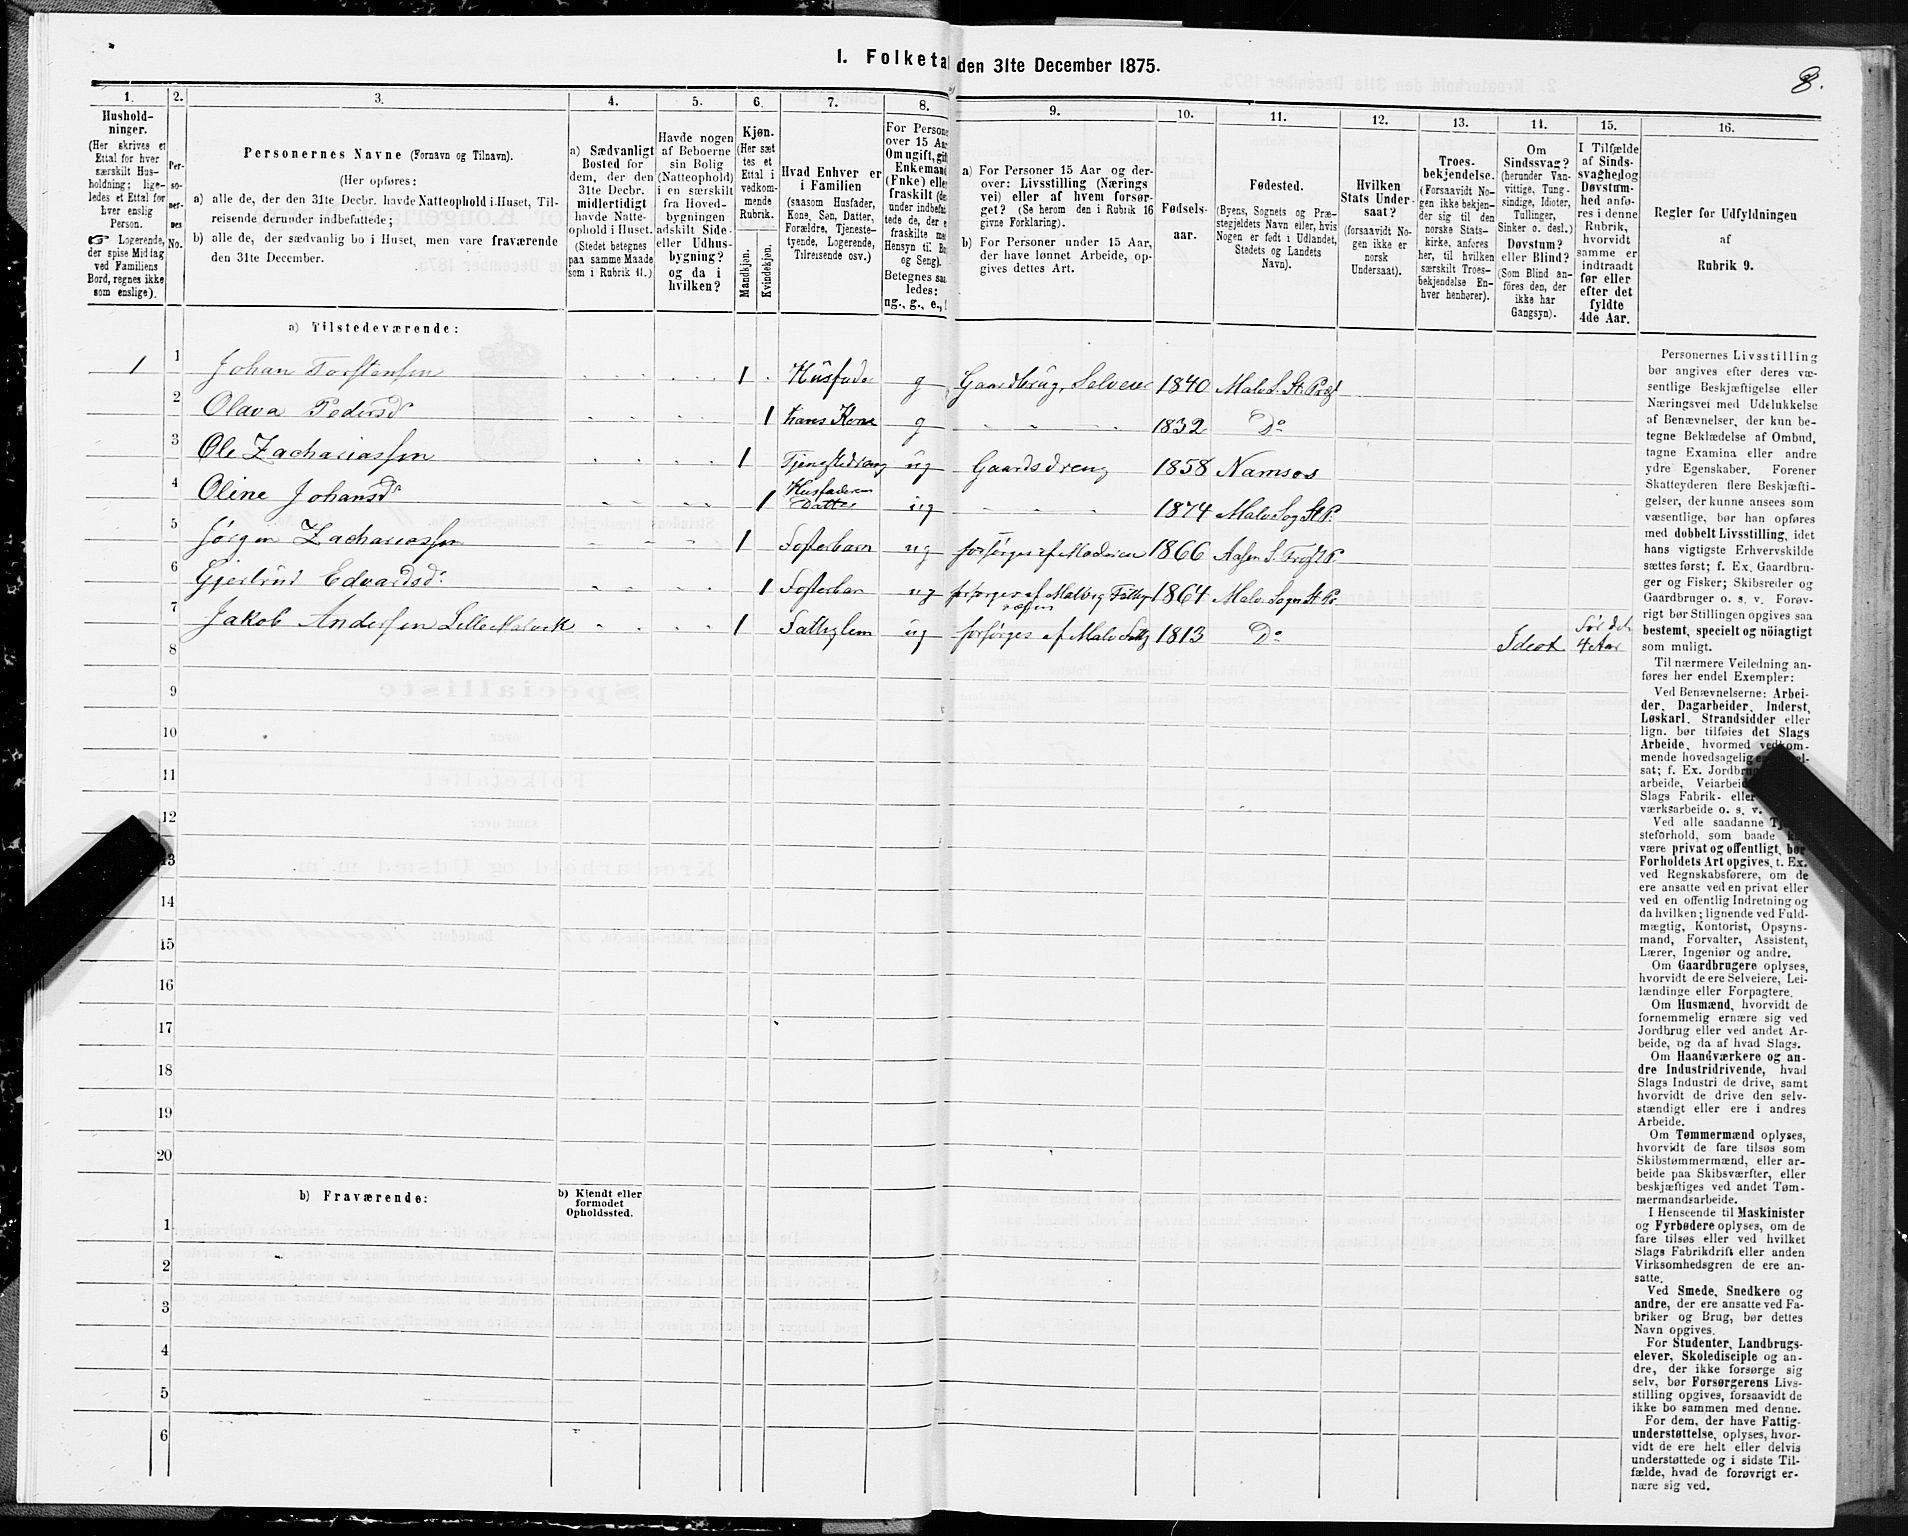 1. Folketal den 31te December 1875.
8.
1.
2.
3.
4.
5.
6.
7.
8.
9.
10.
11.
12.
13.
14.
15.
16.
Hushold-
ninger.
(Her skrives et
Ettal for hver
særskilt Hus-
holdning; lige-
ledes et Ettal for
hver enslig
Person.
☞ Logerende,
der spise Middag
ved Familiens
Bord, regnes ikke
som enslige).
Per-
so-
ner-
nes
No.
Personernes Navne (Fornavn og Tilnavn).
(Her opføres:
a) alle de, der den 31te Decbr. havde Natteophold i Huset, Til-
reisende derunder indbefattede;
b) alle de, der sædvanlig bo i Huset, men vare fraværende
den 31te December.
a) Sædvanligt
Bosted for
dem, der den
31te Decbr.
midlertidigt
havde Natte-
ophold i Huset.
(Stedet betegnes
paa samme Maade
som i Rubrik 11.)
Havde nogen
af Beboerne
sin Bolig
(Natteophold)
i en særskilt
fra Hoved-
bygningen
adskilt Side-
eller Udhus-
bygning?
og da i
hvilken?
Kjøn.
(Her sæt
tes et
Ettal i
vedkom-
mende
Rubrik.
Mandkjøn.
Kvindekjøn.
Hvad Enhver er
i Familien
(saasom Husfader,
Kone, Søn, Datter,
Forældre, Tjeneste-
tyende, Logerende,
Tilreisende osv.)
For Persone
over 15 Aar
Om ugift, gift
Enkemand
(Enke) elle
fraskilt (de
under indbefat
tede de, der e
fraskilte me
Hensyn til Bo
og Seng).
Betegnes saa
ledes:
ug., g., e.,
a) For Personer 15 Aar og der-
over: Livsstilling (Nærings
vei) eller af hvem forsør-
get? (Se herom den i Rubrik 16
givne Forklaring).
b) For Personer under 15 Aar,
der have lønnet Arbeide, op-
gives dettes Art.
Fødsels-
aar.
Fødested.
(Byens, Sognets og Præ-
stegjeldets Navn eller, hvis
Nogen er født i Udlandet,
Stedets og Landets
Navn).
Hvilken
Stats Under-
saat?
(forsaavidt No-
gen ikke er
norsk
Undersaat).
Troes-
bekjendelse.
(Forsaavidt No-
gen ikke bekjen-
der sig til den
norske Stats-
kirke, anføres
her, til hvilken
særskilt Troes-
bekjendelse En-
hver henhører).
Om
Sindssvag?
(herunder Van-
vittige, Tung-
sindige, Idioter,
Tullinger,
Sinker o. desl.)
Døvstum?
eller Blind?
(Som Blind an-
føres den, der
ikke har
Gangsyn).
I Tilfælde
af Sinds-
svaghed og
Døvstum-
hed anfø-
res i denne
Rubrik,
hvorvidt
samme er
indtraadt
før eller
efter det
fyldte
4de Aar.
Regler for Udfyldningen
af
Rubrik 9.
a) Tilstedeværende:
1 1 Johan Torstensen 1 Husfader g Gaardbrug, Selveier 1840 Malv. S. St. Præg
2 Olava Pedersd 1 hans Kone g 1832 Do
3 Ole Zachariassen 1 Tjenestedreng ug Gaardsdreng 1858 Namsos
4 Oline Johansd 1 Husfaderens Datter ug 1874 Malv Sog St. P.
5 Jørgen Zachariassen 1 Fosterbarn ug forsørges af Moderen 1866 Aasen S. Frost P.
6 Gjertrud Edvardsd. 1 Fosterbarn ug forsørges af Malvig Fattigvæsen 1864 Malv. Sogn St. Pr
7 Jakob Andersen Lille Malvik 1 Fattiglem ug forsørges af Malv Fattg 1813 Do Ideot Før det 4 Aar
8
9
10
11
12
13
14
15
16
17
18
19
20
b) Fraværende:
b) Kjendt eller
formodet
Opholdssted.
1
2
3
4
5
6
Personernes Livsstilling
bør angives efter deres væ-
sentlige Beskjæftigelse eller
Næringsvei med Udelukkelse
af Benævnelser, der kun be-
tegne Beklædelse af Ombud,
tagne Examina eller andre
ydre Egenskaber. Forener
Skatteyderen flere Beskjæfti-
gelser, der kunne ansees som
væsentlige, bør han opføres
med dobbelt Livsstilling, idet
hans vigtigste Erhvervskilde
sættes først; f. Ex. Gaardbru-
ger og Fisker; Skibsreder og
Gaardbruger o. s. v. Forøv-
rigt bør Stillingen opgives saa
bestemt, specielt og nöiagtigt
som muligt.
Til nærmere Veiledning an-
føres her endel Exempler:
Ved Benævnelserne: Arbei-
der, Dagarbeider, Inderst,
Løskarl, Strandsidder eller
lign. bør tilføies det Slags
Arbeide, hvormed vedkom-
mende hovedsagelig er
sat; f. Ex. Jordbru
arbeide, Veiarbeid
Slags Fabrik- eller
værksarbeide o. s. v.
Ved alle saadanne
steforhold, som baade
være privat og offentligt, bør
Forholdets Art opgives, t. Ex.
ved Regnskabsførere, om de
ere ansatte ved en privat eller
ved en offentlig Indretning og
da hvilken; lignende ved Fuld-
mægtig, Kontorist, Opsyns-
mand, Forvalter, Assistent,
Lærer, Ingeniør og andre.
Om Gaardbrugere oplyses,
hvorvidt de ere Selveiere, Lei-
lændinge eller Forpagtere.
Om Husmænd, hvorvidt de
fornemmelig ernære sig ved
Jordbrug eller ved andet Ar-
beide, og da af hvad Slags.
Om Haandværkere og an-
dre Industridrivende, hvad
Slags Industri de drive, samt
hvorvidt de drive den selv-
stændigt eller ere i andres
Arbeide.
Om Tømmermænd oplyses,
hvorvidt de fare tilsøs som
Skibstømmermænd, eller ar-
beide paa Skibsværfter, eller
beskjæftiges ved andet Tøm-
mermandsarbeide.
I Henseende til Maskinister
og Fyrbødere oplyses, om de
fare tilsøs eller ved hvilket
Slags Fabrikdrift eller anden
Virksomhedsgren de ere an-
satte.
Ved Smede, Snedkere og
andre, der ere ansatte ved Fa-
briker og Brug, bør dettes
Navn opgives.
For Studenter, Landbrugs-
elever, Skoledisciple og an-
dre, der ikke forsørge sig
selv, bør Forsørgerens Livs-
stilling opgives, forsaavidt de
ikke bo sammen med denne.
For dem, der have Fattig-
understøttelse, oplyses, hvor-
vidt de ere helt eller delvis
understøttede og i sidste Til-
fælde, hvad de forøvrigt er-
nære sig ved.